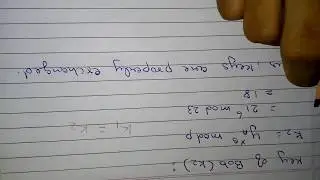 key of Bob (K₂):
K₂ = yₐˣᴮ mod p
= 21⁶ mod 23
= 18
K₁ = K₂
keys are properly exchanged.